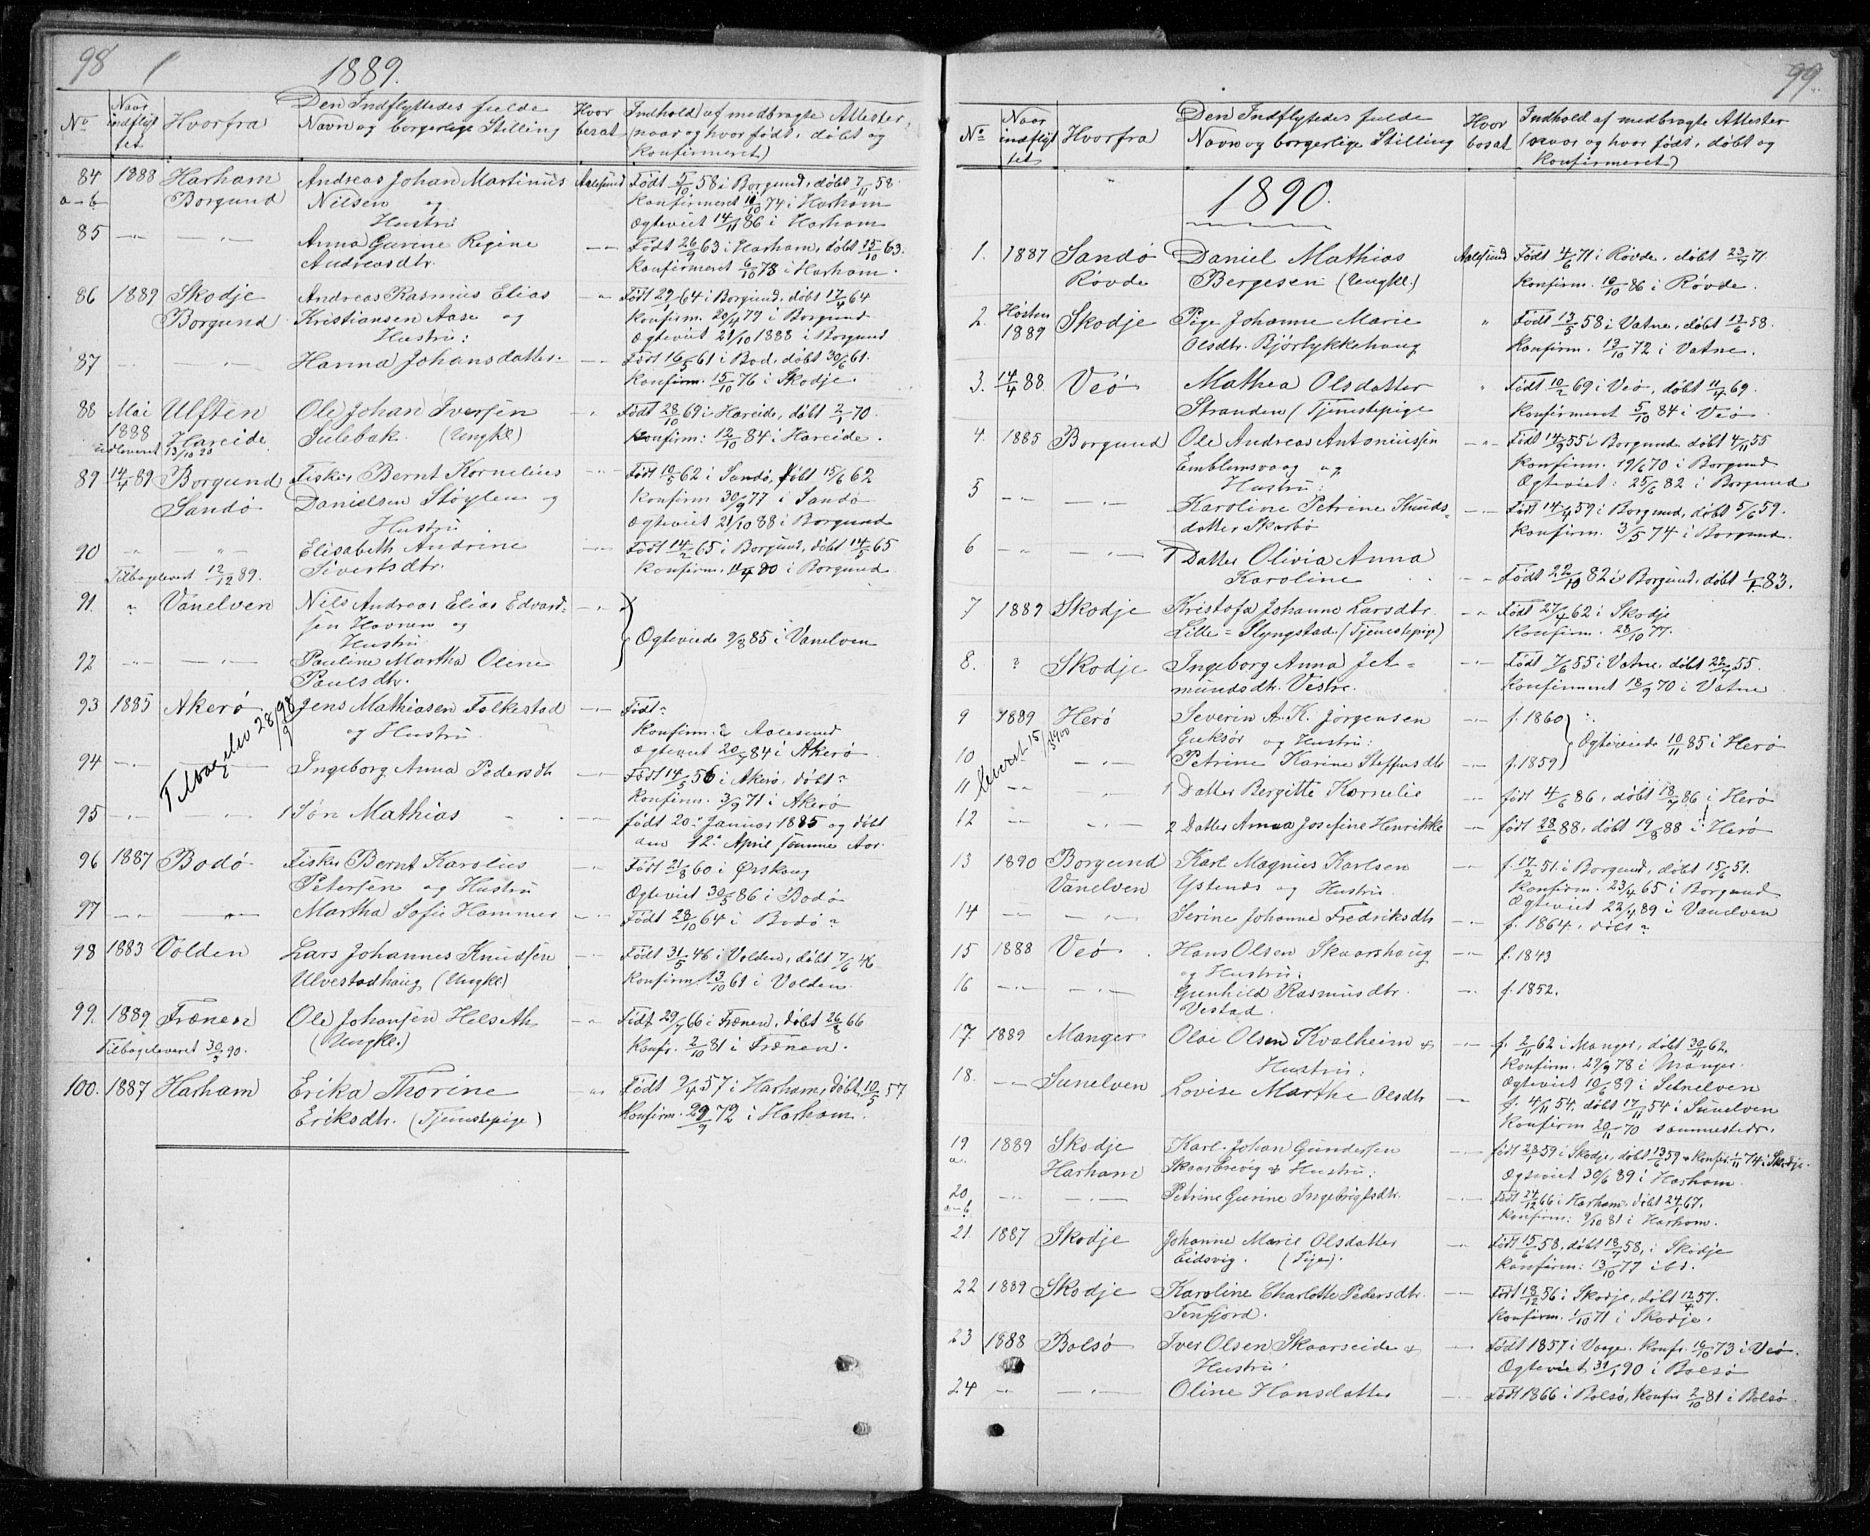 98
1889.
No
Naar indflyttet
Hvorfra
Den Indflyttedes fulde Navn og borgerlige Stilling
Hvor bosat
Indhold af medbragte Attester (naar og hvor født, døbt og konfirmeret)
84 1888 Harham Andreas Johan Martinus Aalesund Født 5/10 58 i Borgund, døbt 7/11 58.
a-b Borgund Nilsen og Konfirmeret 11/10 74 i Harham
Hustru Ogteviet 14/11 86 i Harham
85 — — Anna Gurine Regine — Født 26/9 63 i Harham, døbt 15/10 63.
Andreasdtr. Konfirmeret 6/10 78 i Harham.
86 1889 Skodje Andreas Rasmus Elias — Født 29/ 64 i Borgund, døbt 17/4 64
Borgund Kristiansen Aase og Konfirm. 20/4 79 i Borgund
Hustru: Ogteviet 21/10 1888 i Borgund
87 — — Hanna Johansdatter — Født 16/5 61 i Bod, døbt 30/6 61.
Konfirm. 15/10 76 i Skodje.
88 Mai Ulften Ole Johan Iversen — Født 28/10 69 i Hareide, døbt 2/1 70.
1888 Hareide Sulebak. (Ungkl) Konfirm: 12/10 84 i Hareide.
udleveret 13/10 23
89 14/4 89 Borgund Fisker Bernt Kornelius — Født 10/5 62 i Sandø, døbt 15/6 62
Sandø Danielsen Støylen og Konfirm 30/9 77 i Sandø
Hustru Ogteviet 21/10 88 i Borgund
90 — — Elisabeth Andrine — Født 14/2 65 i Borgund, døbt 14/5 65
Tilbageleveret 12/12 89. Sivertsdtr. Konfirm. 11/4 80 i Borgund
91. " Vanelven Nils Andreas Elias Edvard- —
sen Hovnen og Ogteviede 9/8 85 i Vanelven
Hustru
92 — — Pauline Martha Oline —
Paulsdtr.
93 1885 Akerø Jens Mathiasen Folkestad — Født?
og Hustru. Konfirm. ? Aalesund
Tilbagelev 28/9 98
Ogteviet 20/7 84 i Akerø.
94 — — Ingeborg Anna Pedersdtr — Født 14/5 56 i Akerø. døbt?
Konfirm. 3/9 71 i Akerø
95 — — 1 Søn Mathias — født 20. Januar 1885 og døbt
den 12. April samme Aar.
96 1887 Bodø Fisker Bernt Karolus — Født 21/8 60 i Ørskoug
Petersen og Hustru Ogteviet 30/5 86 i Bodø
97 — — Martha Sofie Hammer — Født 28/10 64 i Bodø?
98 1883 Volden Lars Johannes Knudsen — Født 31/5 46 i Volden, døbt 7/6 46.
Ulvestadhaug (Ungkl) Konfirm. 13/10 61 i Volden.
99. 1889 Frænen Ole Johansen Helseth — Født 29/7 66 i Frænen, døbt 26/8 66
Tilbageleveret 30/3 90. (Ungkl.) Konfr. 2/10 81 i Frænen.
100. 1887 Harham Erika Thorine — Født 9/4 57 i Harham, døbt 10/5 57
Eriksdtr. (Tjenestepige) Konfirm. 29/9 72 i Harham.
99.
No
Naar indflyttet
Hvorfra
Den Indflyttedes fulde Navn og borgerlige Stilling
Hvor bosat
Indhold af medbragte Attester (naar og hvor født, døbt og konfirmeret)
1890.
1. 1887 Sandø Daniel Mathias Aalesund Født 4/6 71 i Røvde, døbt 23/7 71.
Røvde Bergesen (Ungkl.) Konfirm. 10/10 86 i Røvde.
2. Høsten Skodje Pige Johanne Marie " Født 13/5 58 i Vatne, døbt 12/6 58.
1889 Olsdtr. Bjørlykkehaug Konfirm. 13/10 72 i Vatne.
3. 14/4 88 Veø Mathea Olsdatter " Født 10/2 69 i Veø, døbt 11/4 69.
Stranden (Tjenestepige Konfirmeret 5/10 84 i Veø.
4. 1885 Borgund Ole Andreas Antoniussen — Født 14/9 55 i Borgund døbt 4/11 55
Emblemsvaag og Konfirm. 19/6 70 i Borgund
Hustru: Ogteviet: 25/6 82 i Borgund
5 — — Karoline Petrine Knuds- — Født 14/4 59 i Borgund, døbt 5/6 59.
datter Skarbø Konfirm. 3/5 74 i Borgund.
6 — — 1 Datter Olivia Anna
Karoline — Født 22/10 82 i Borgund, døbt 1/1 83.
7 1889 Skodje Kristofa Johanne Larsdtr. — Født 27/4 62 i Skodje
Lille-Slyngstad (Tjenestepige) Konfirm. 28/10 77.
8. " Skodje Ingeborg Anna Jet- — Født 7/6 55 i Vatne, døbt 22/7 55.
mundsdtr. Vestre. Konfirmeret 18/9 70 i Vatne
9 1889 Herø Severin A. K. Jørgensen — f. 1860
leveret 15/5 1900
Gurskør og Hustru: Ogteviede 10/11 85 i Herø
10 — Petrine Karine Steffensdtr — f. 1859
11 — — 1 Datter Bergitte Kornelie — født 4/6 86, døbt 18/7 86 i Herø
12 — — 2 Datter Anna Josefine Henrikke — født 28/6 88, døbt 19/8 88 i Herø
13 1890 Borgund Karl Magnus Karlsen — f. 17/2 51. i Borgund, døbt 15/6 51.
Vanelven Ystenes og Hustru. Konfirm. 23/4 65 i Borgund
Ogteviet 22/4 89 i Vanelven
14 — — Serine Johanne Fredriksdtr — f. 1864. døbt?
15 1888 Veø Hans Olsen Skaarshaug — f. 1843
og Hustru:
16 — — Gunhild Rasmusdtr. — f. 1852.
Vestad.
17. 1889 Manger Olai Olsen Kvalheim & — f. 2/11 62 i Manger, døbt 30/11 62.
Hustru: Konfirm. 29/9 78 i Manger
18. — Sunelven Lovise Marthe Olsdtr — Ogteviet 10/6 89 i Sunelven
f. 4/11 54, døbt 17/11 54 i Sunelven
Konfirm 20/11 70 sammesteds.
19 1889 Skodje Karl Johan Gundersen — født 28/1 59 i Skodje, døbt 13/6 59 & Konfir. 1/11 74 i Skodje.
a. Harham Skaarbrevig & Hustru: Ogteviet 30/6 89 i Harham.
20 — — Petrine Gurine Ingebrigtsdtr. — Født 24/12 66 i Harham, døbt 24/1 67.
a-b Konfirm: 9/10 81 i Harham.
21. 1887 Skodje Johanne Marie Olsdatter — Født 15/6 58, døbt 18/7 58, i Skodje
Eidsvig. (Pige). Konfirm: 13/10 77 ibd.
22 1889 Skodje Karoline Charlotte Pedersdtr. — Født 18/12 56 i Skodje, døbt 12/4 57.
Tenfjord. Konfirm. 1/10 71 i Skodje.
23 1888 Bolsø Iver Olsen Skaarseide & — Født 1857 i Vaage. Konfr. 10/10 73 i Veø.
Hustru: Ogteviet 31/1 90 i Bolsø
24 — — Oline Hansdatter — Født 1866 i Bolsø, Konfir 2/10 81 i Bolsø.